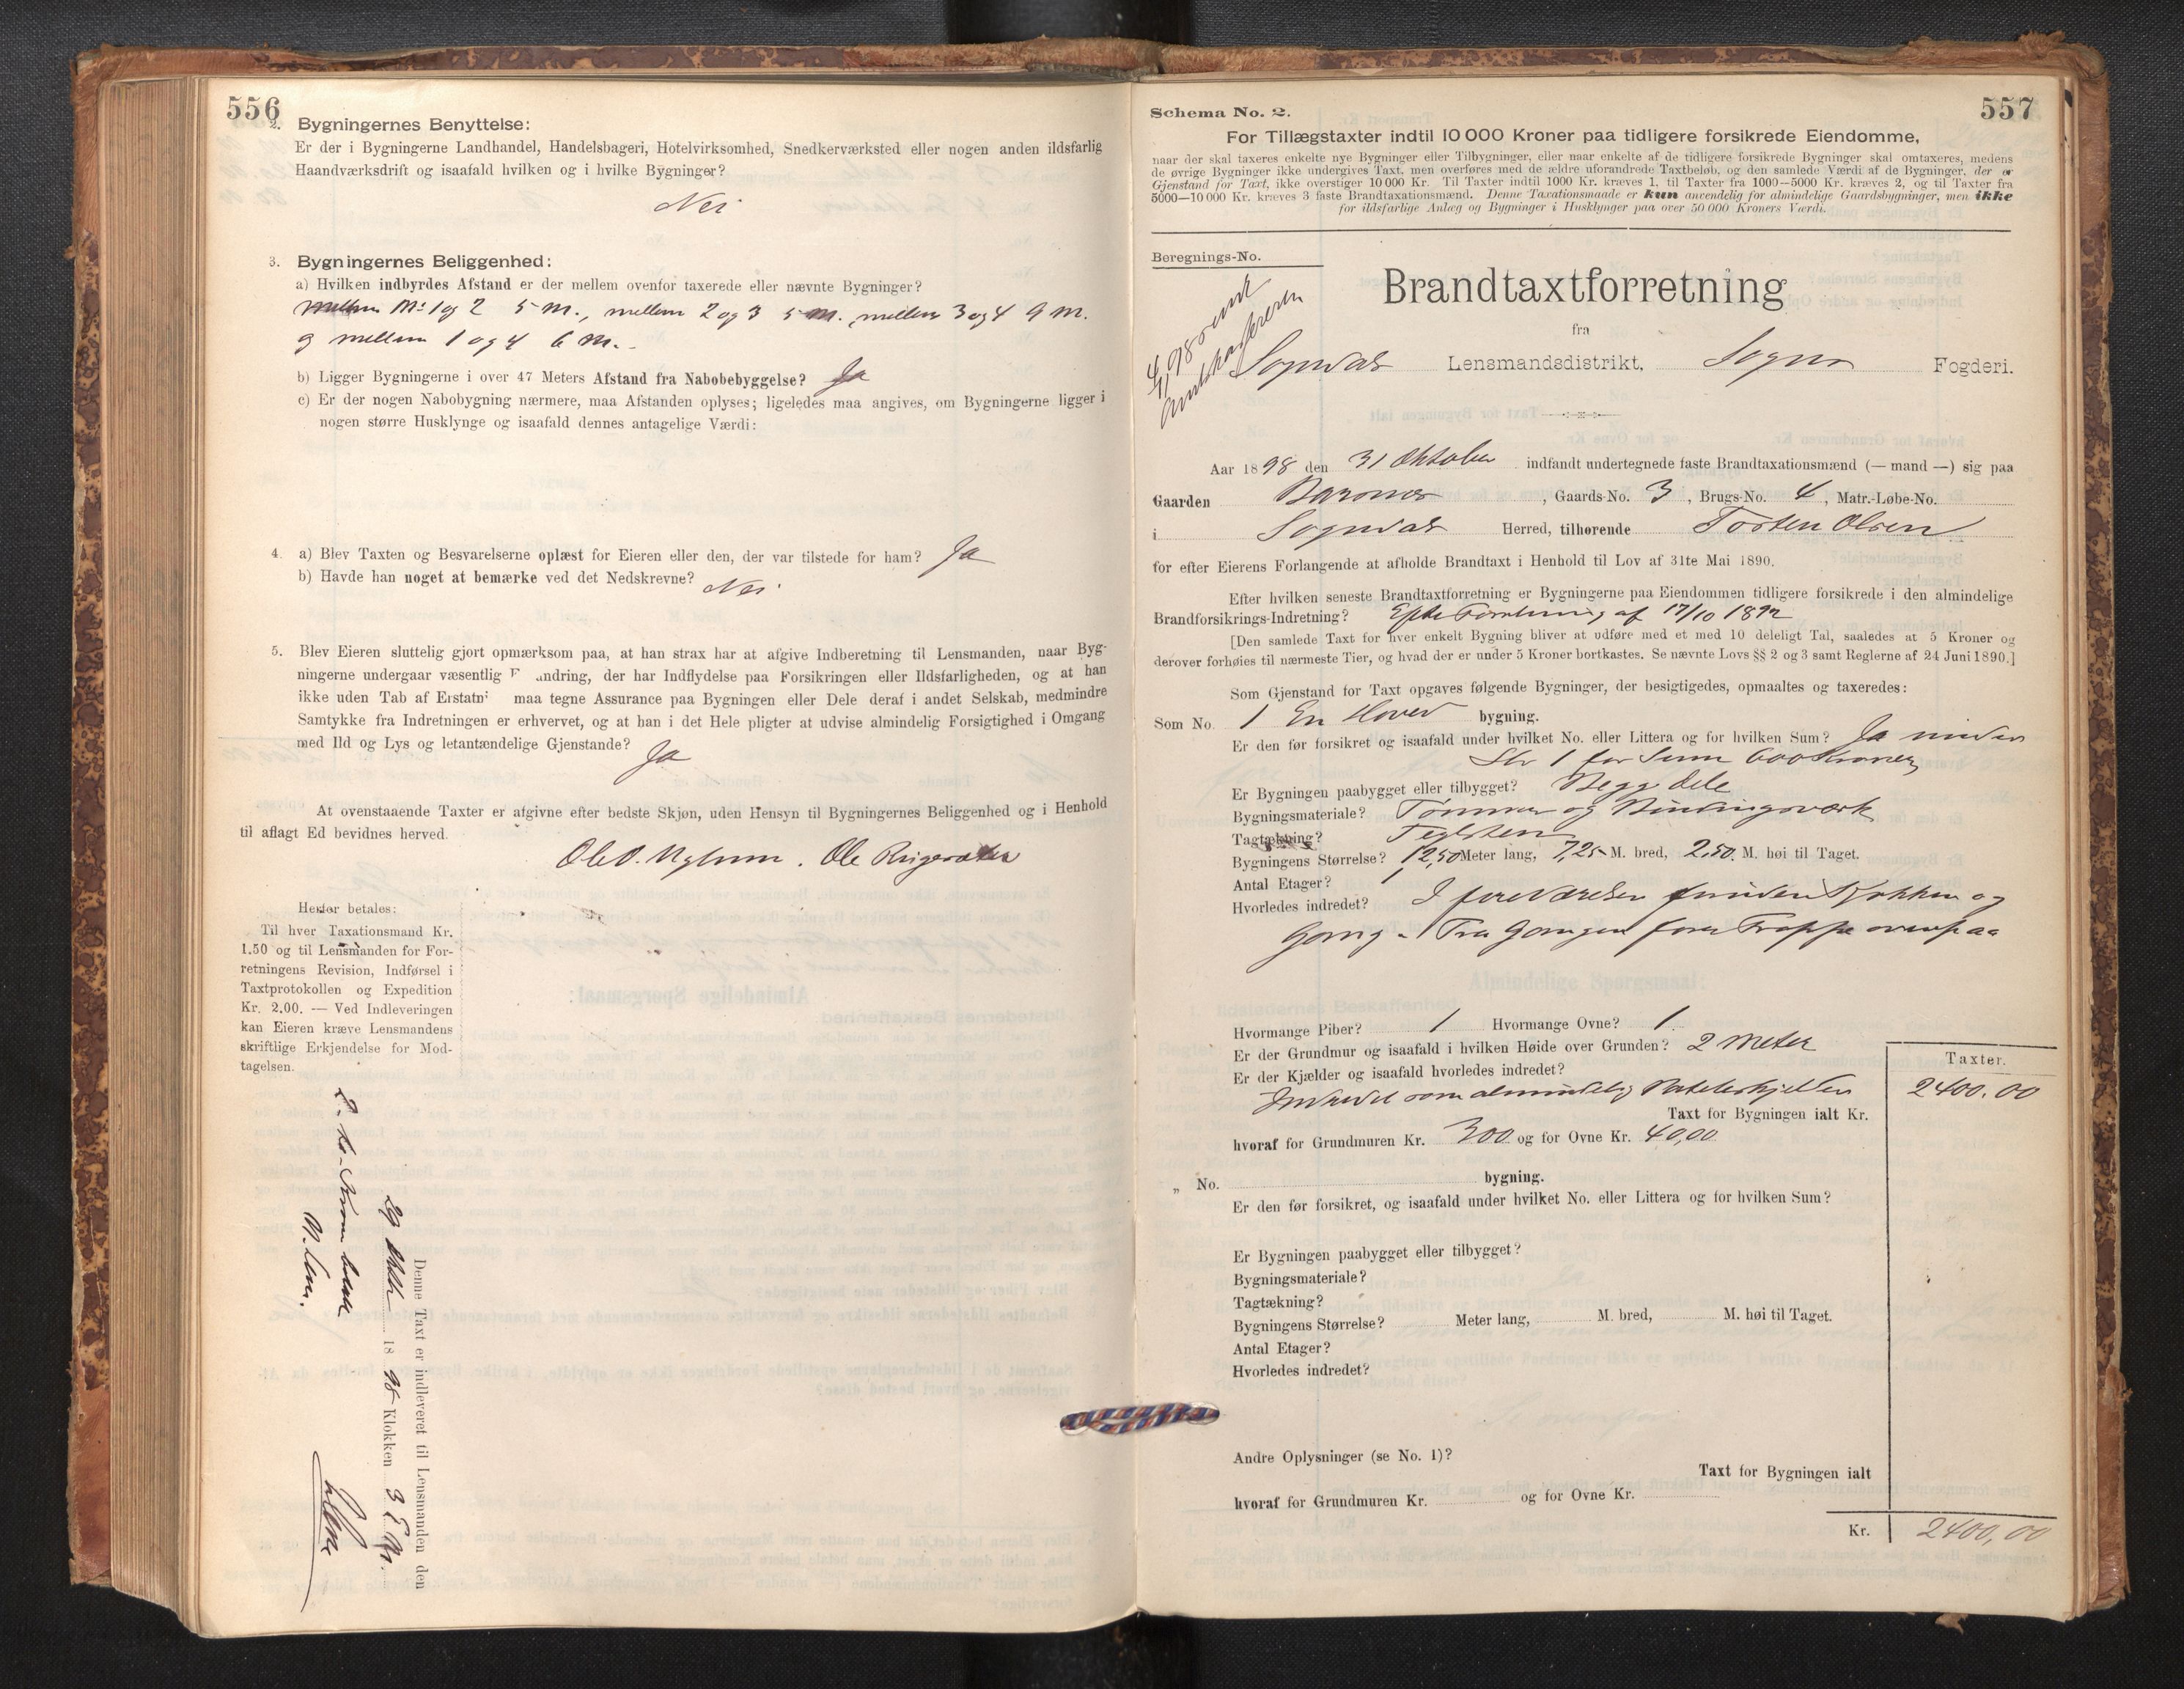 556
2. Bygningernes Benyttelse:
Er der i Bygningerne Landhandel, Handelsbageri, Hotelvirksomhed, Snedkerværksted eller nogen anden ildsfarlig
Haandværksdrift og isaafald hvilken og i hvilke Bygninger?
Nei
3. Bygningernes Beliggenhed:
a) Hvilken indbyrdes Afstand er der mellem ovenfor taxerede eller nævnte Bygninger?
Mellem No 1 og 2 5 M., mellem 2 og 3 5 M. mellem 3 og 4 9 M.
og mellem 1 og 4 6 M.
b) Ligger Bygningerne i over 47 Meters Afstand fra Nabobebyggelse? Ja
c) Er der nogen Nabobygning nærmere, maa Afstanden oplyses; ligeledes maa angives, om Bygningerne ligger i
nogen større Husklynge og isaafald dennes antagelige Værdi:
4. a) Blev Taxten og Besvarelserne oplæst for Eieren eller den, der var tilstede for ham? Ja
b) Havde han noget at bemærke ved det Nedskrevne? Nei
5. Blev Eieren sluttelig gjort opmærksom paa, at han strax har at afgive Indberetning til Lensmanden, naar Byg-
ningerne undergaar væsentlig F andring, der har Indflydelse paa Forsikringen eller Ildsfarligheden, og at han
ikke uden Tab af Erstatni maa tegne Assurance paa Bygningen eller Dele deraf i andet Selskab, medmindre
Samtykke fra Indretningen er erhvervet, og at han i det Hele pligter at udvise almindelig Forsigtighed i Omgang
med Ild og Lys og letantændelige Gjenstande?
Ja
At ovenstaaende Taxter er afgivne efter bedste Skjøn, uden Hensyn til Bygningernes Beliggenhed og i Henhold
til aflagt Ed bevidnes herved.
Ole
Herfor betales:
Til hver Taxationsmand Kr.
1.50 og til Lensmanden for For-
retningens Revision, Indførsel i
Taxtprotokollen og Expedition
Kr. 2.00. — Ved Indleveringen
kan Eieren kræve Lensmandens
skriftlige Erkjendelse for Mod-
tagelsen.
Denne Taxt er indleveret til Lensmanden den
29 1898 Klokken 3 E. M.
557
Schema No. 2.
For Tillægstaxter indtil 10 000 Kroner paa tidligere forsikrede Eiendomme,
naar der skal taxeres enkelte nye Bygninger eller Tilbygninger, eller naar enkelte af de tidligere forsikrede Bygninger skal omtaxeres, medens
de øvrige Bygninger ikke undergives Taxt, men overføres med de ældre uforandrede Taxtbeløb, og den samlede Værdi af de Bygninger, der er
Gjenstand for Taxt, ikke overstiger 10 000 Kr. Til Taxter indtil 1000 Kr. kræves 1, til Taxter fra 1000—5000 Kr. kræves 2, og til Taxter fra
5000—10 000 Kr. kræves 3 faste Brandtaxationsmænd. Denne Taxationsmaade er kun anvendelig for almindelige Gaardsbygninger, men ikke
for ildsfarlige Anlæg og Bygninger i Husklynger paa over 50 000 Kroners Værdi.
Beregnings-No.
Brandtaxtforretning
fra
Sogndal Lensmandsdistrikt, Sogns Fogderi.
Aar 1898 den 31 Oktober indfandt undertegnede faste Brandtaxationsmænd (— mand —) sig paa
Gaarden , Gaards-No. 3, Brugs-No. 4, Matr.-Løbe-No.
i Sogndal Herred, tilhørende Torsten Olsen
for efter Eierens Forlangende at afholde Brandtaxt i Henhold til Lov af 31te Mai 1890.
Efter hvilken seneste Brandtaxtforretning er Bygningerne paa Eiendommen tidligere forsikrede i den almindelige
Brandforsikrings-Indretning? Efter Forretning af 17/10 1892
[Den samlede Taxt for hver enkelt Bygning bliver at udføre med et med 10 deleligt Tal, saaledes at 5 Kroner og
derover forhøies til nærmeste Tier, og hvad der er under 5 Kroner bortkastes. Se nævnte Lovs §§ 2 og 3 samt Reglerne af 24 Juni 1890.]
Som Gjenstand for Taxt opgaves følgende Bygninger, der besigtigedes, opmaaltes og taxeredes:
Som No. 1 En Hoved bygning.
Er den før forsikret og isaafald under hvilket No. eller Littera og for hvilken Sum? Ja under
1 for Sum 600 Kroner
Er Bygningen paabygget eller tilbygget? Begge dele
Bygningsmateriale? Tømmer og Bindingsværk
Tagtækning? Teglsten
Bygningens Størrelse? 12,50 Meter lang, 7,25 M. bred, 2,50 M. høi til Taget.
Antal Etager? 1
Hvorledes indredet? I foreværelser foruden Kjøkken og
Gang. Fra Gangen fører Trappe ovenpaa
Hvormange Piber? 1 Hvormange Ovne? 1
Er der Grundmur og isaafald i hvilken Høide over Grunden? 2 Meter
Er der Kjælder og isaafald hvorledes indredet?
Indredet som almindelig Poteteskjelder
Taxter.
Taxt for Bygningen ialt Kr. 2400.00
hvoraf for Grundmuren Kr. 300 og for Ovne Kr. 40,00
„ No. bygning.
Er den før forsikret, og isaafald under hvilket No. eller Littera og for hvilken Sum?
Er Bygningen paabygget eller tilbygget?
Bygningsmateriale?
Tagtækning?
Bygningens Størrelse? Meter lang, M. bred, M. høi til Taget.
Antal Etager?
Hvorledes indredet?
Andre Oplysninger (se No. 1)?
Taxt for Bygningen ialt
hvoraf for Grundmuren Kr. og for Ovne Kr.
Kr. 2400,00